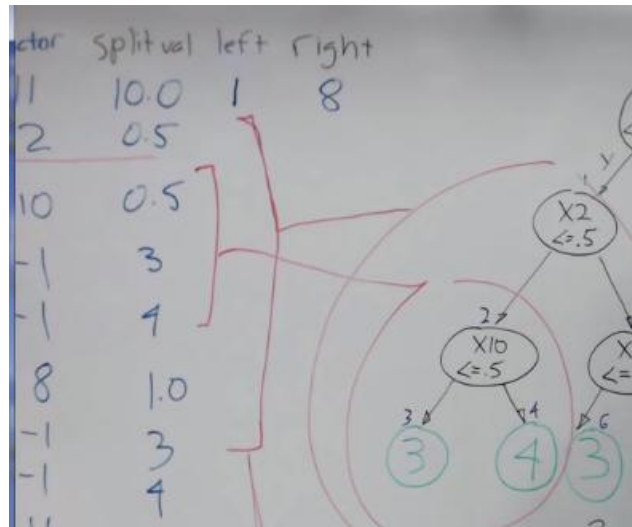 ctor splitval left right
11 10.0 1 8
2 0.5
10 0.5
-1 3
-1 4
8 1.0
-1 3
-1 4
y
X2
<=.5
2
X10
<=.5
X
<=
3 4 6
3 4 3